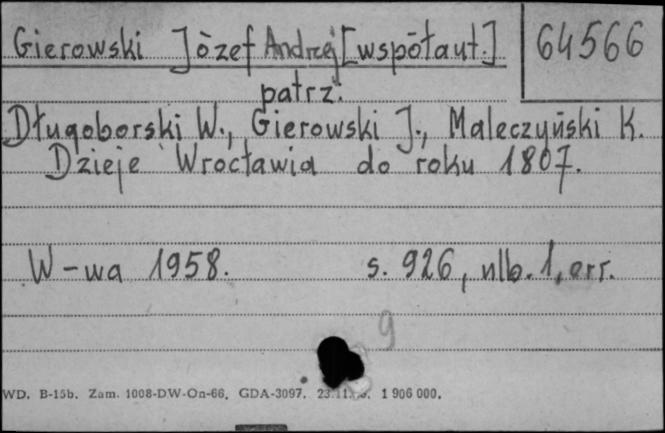 Gierowski Józef Andrzej [współaut.] 64566
patrz:
Długoborski W., Gierowski J., Maleczyński K.
Dzieje Wrocławia do roku 1807.
W-wa 1958. s. 926, nlb. 1, err.
9
WD. B-15b. Zam. 1008-DW-On-66. GDA-3097. 1 906 000.